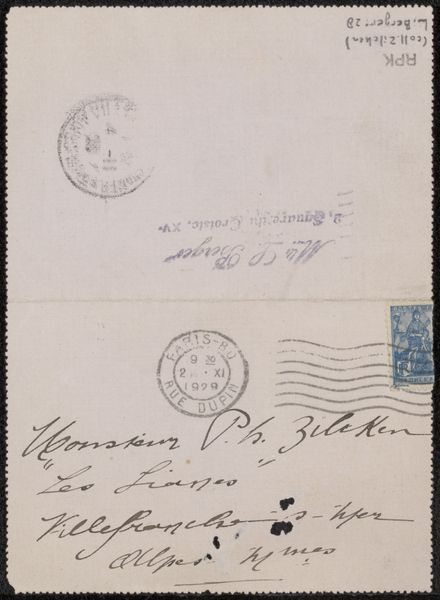 L. Berger: 28
(coll. Zilcken)
RPK
2, Square du Croisic, XV.
L. Berger
PARIS-80
9 30
XI
1929
RUE DUPIN
Monsieur P. h. Zilcken
"Les Lianes"
Villefranche-s-Mer
Alpes Mmes